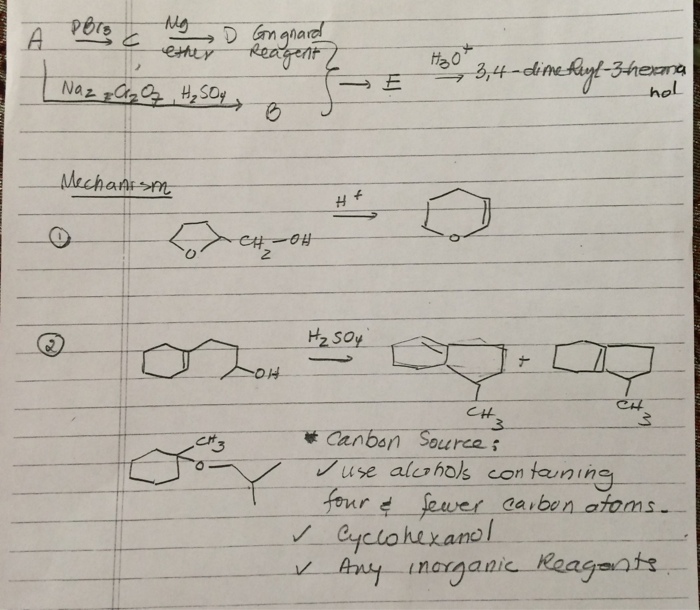 A PBr3 → C Mg ether → D Grignard Reagent
Na2 = Cr2O7, H2SO4 → B
→ E H3O+ → 3,4-dimethyl-3-hexanol
Mechanism
① O CH2-OH H+ → O
② OH H2SO4 → CH3 + CH3
CH3 O
* Carbon Source:
✓ use alcohols containing
four & fewer carbon atoms.
✓ Cyclohexanol
✓ Any inorganic Reagents